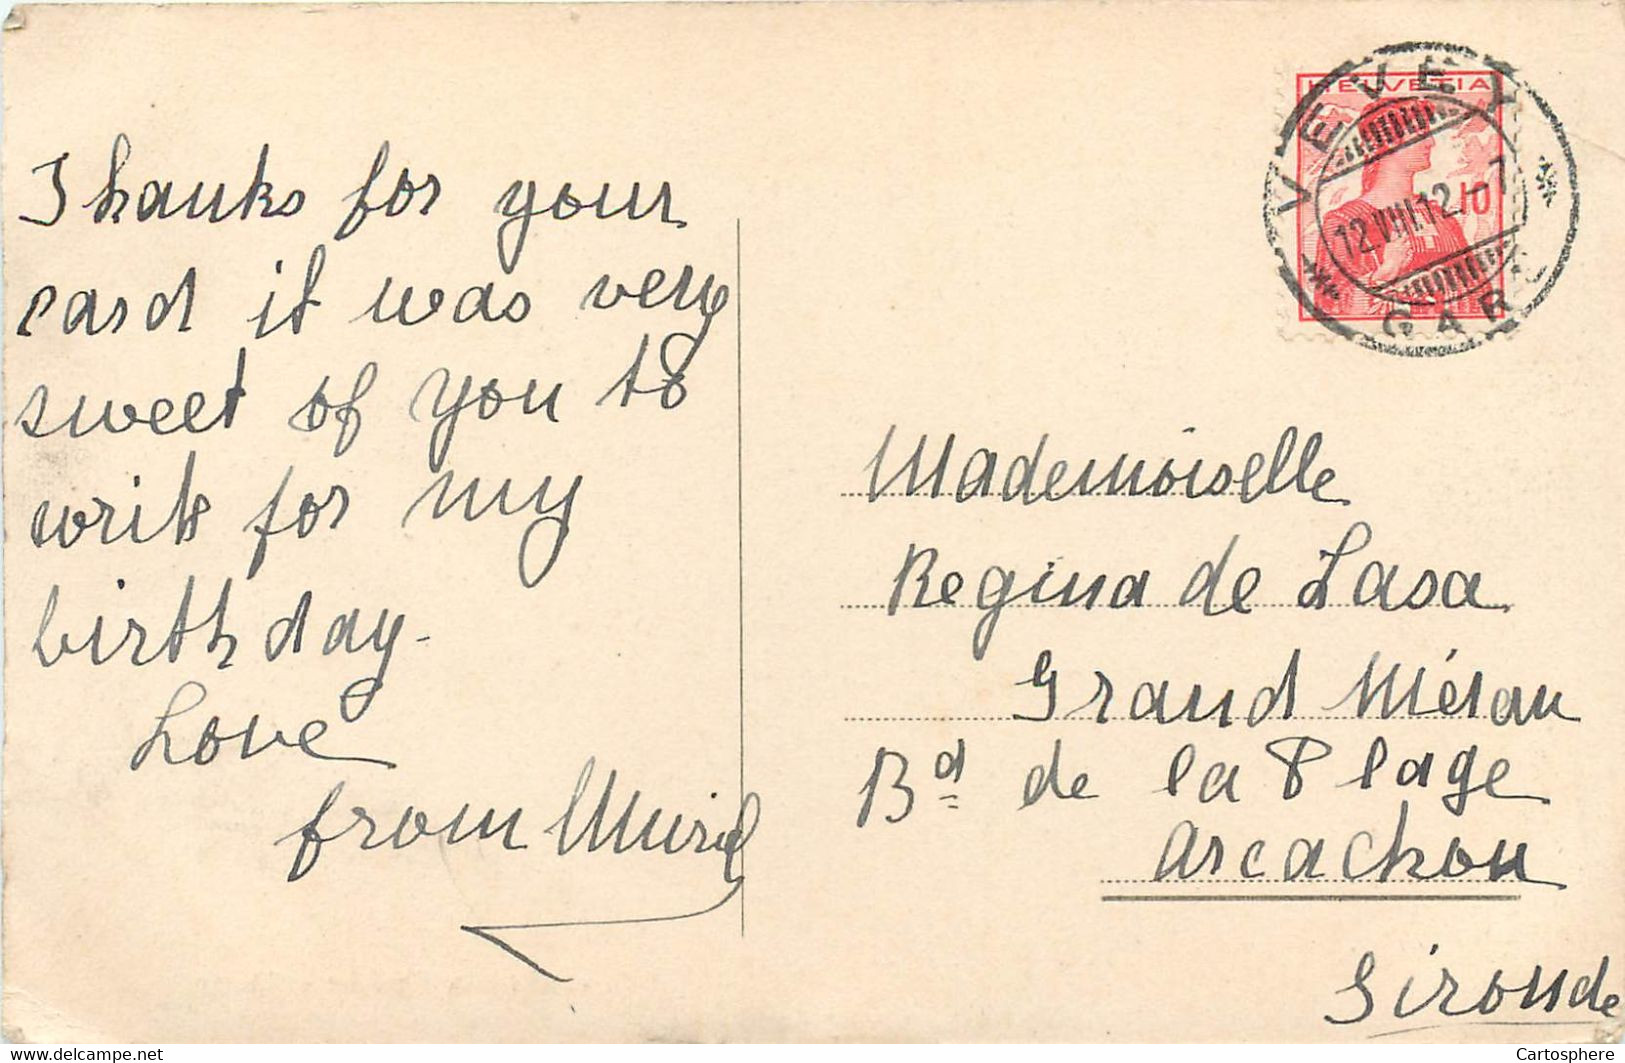 Thanks for your
card it was very
sweet of you to
write for my
birthday.
Love
from Muriel
HELVETIA
10
VEVEY
12.VIII.12.-7
GARE
Mademoiselle
Regina de Lasa
Grand Méran
Bd de la Plage
Arcachon
Gironde
www.delcampe.net
Cartosphere